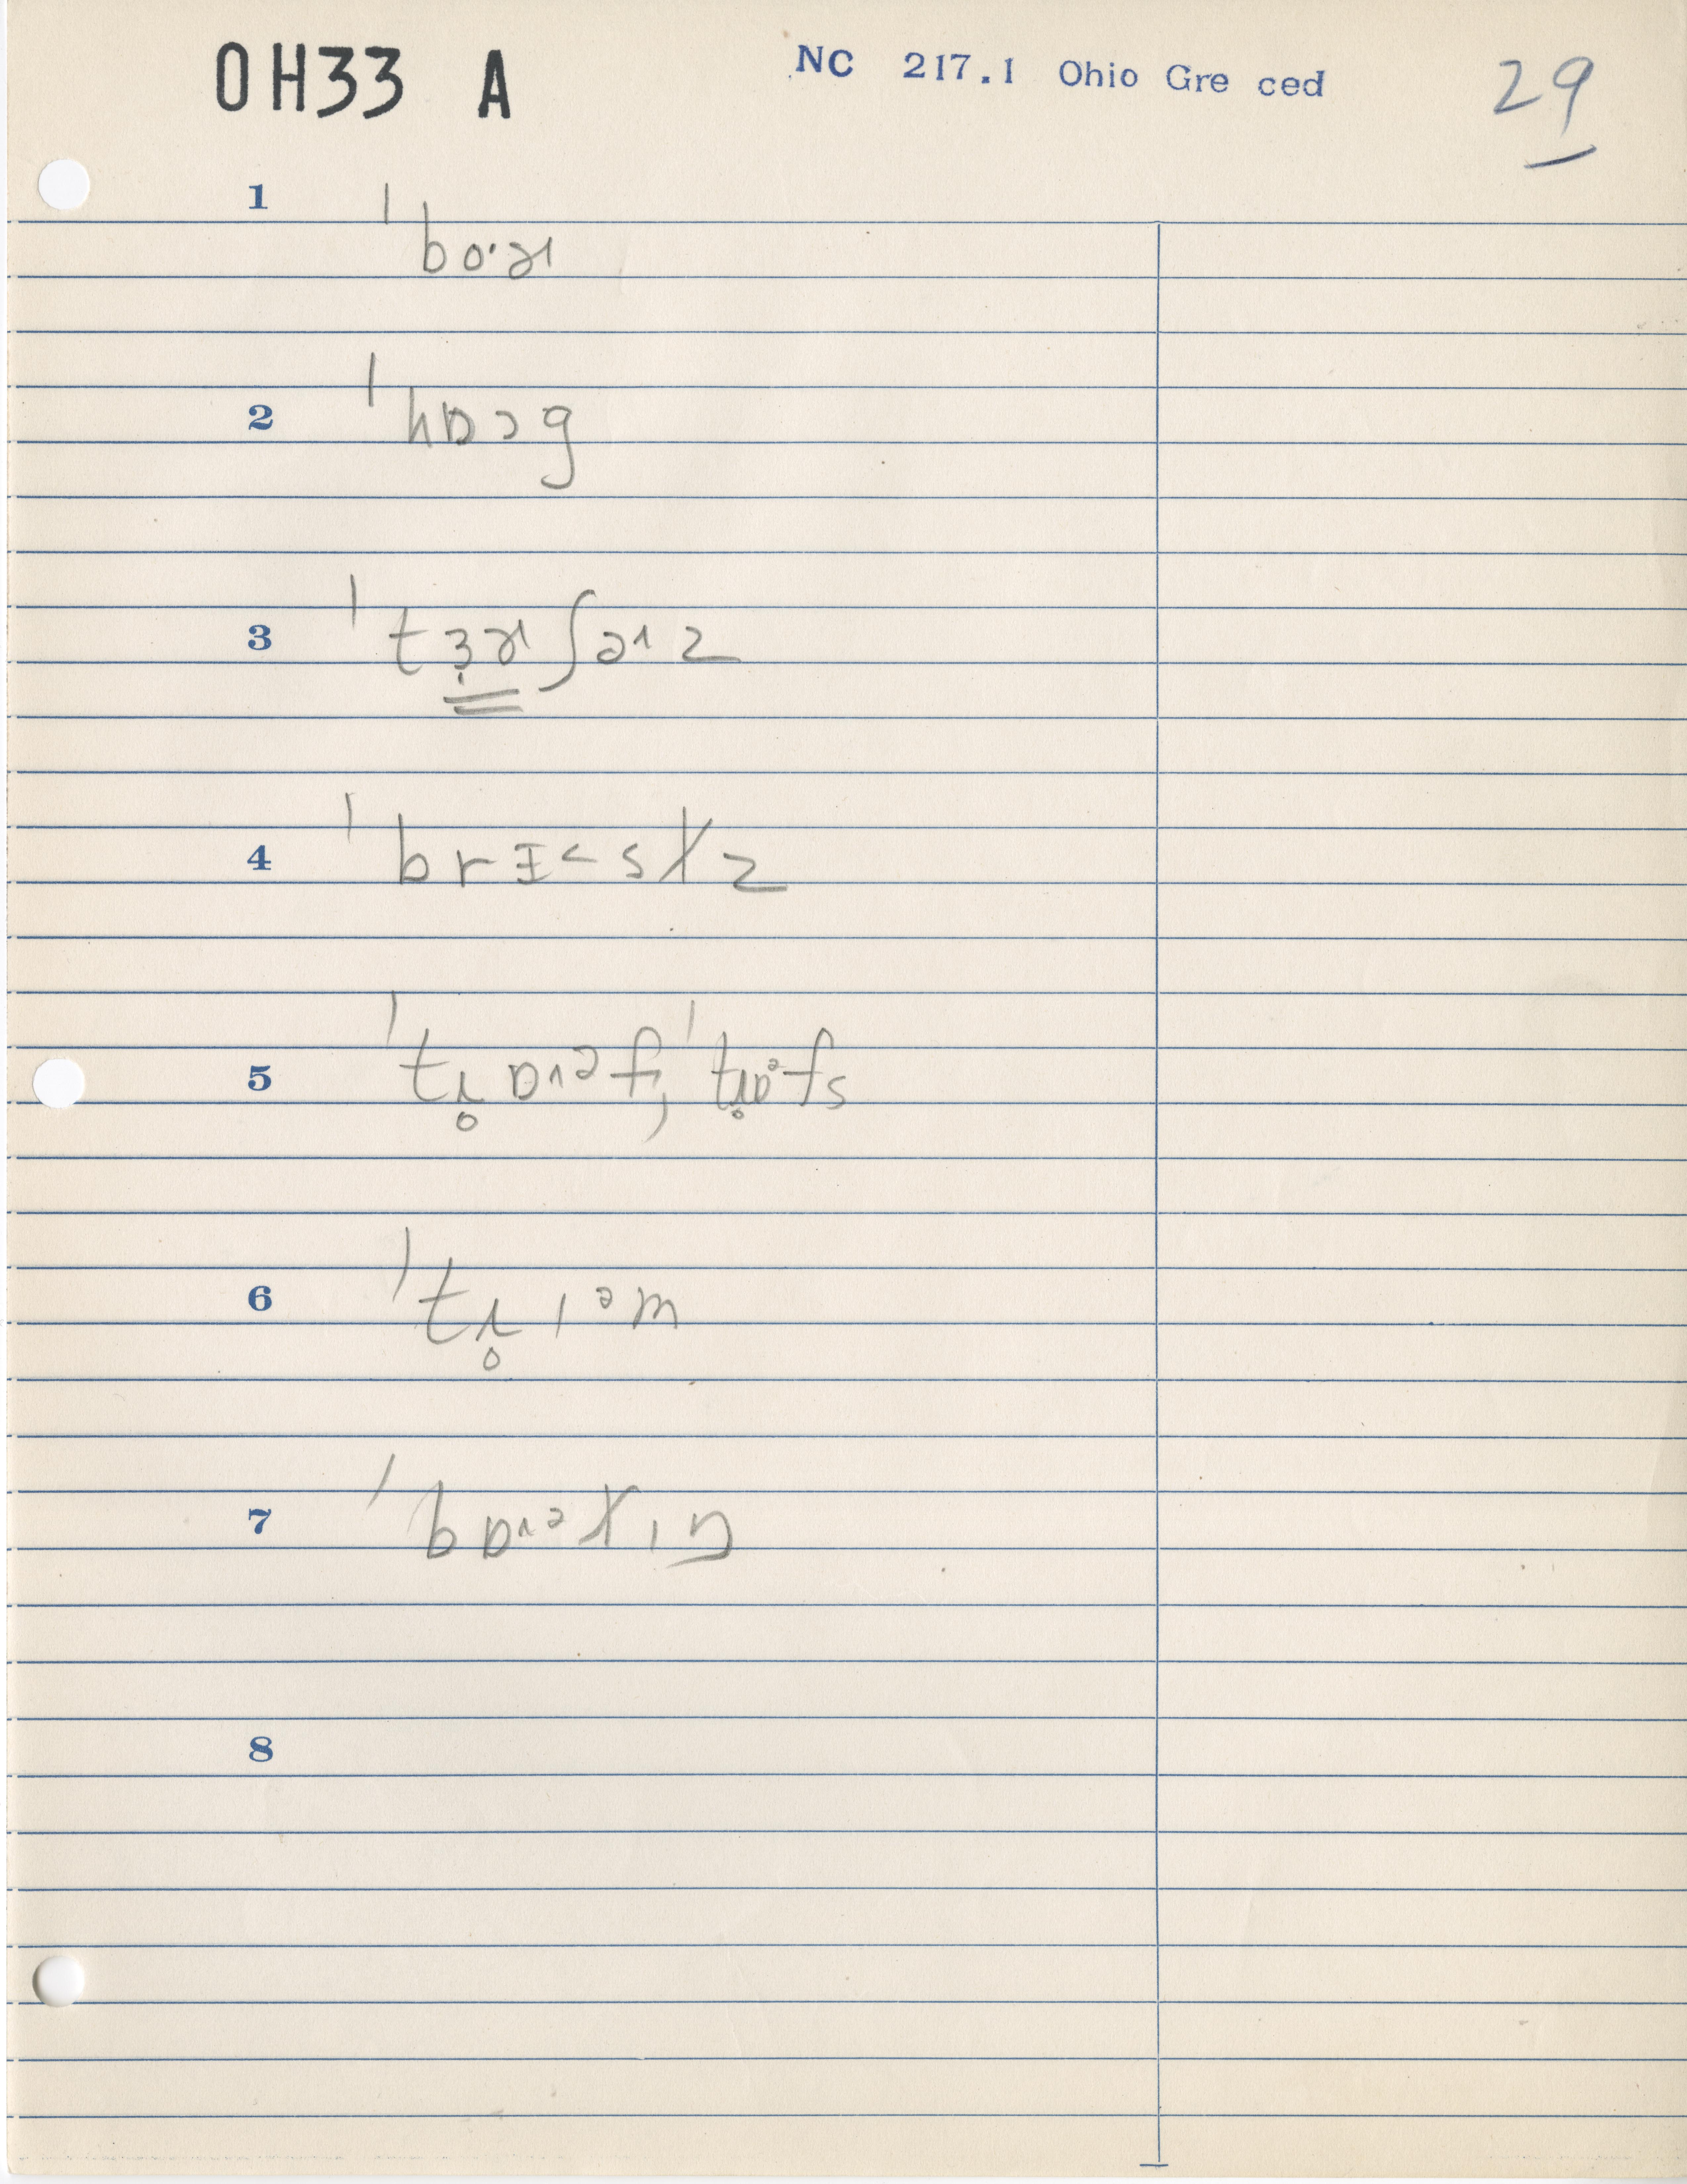 OH33 A NC 217.1 Ohio Gre ced 29
1 ˈbo·ɚ
2 ˈhɒɔg
3 ˈtɜ̣ɚʃə˄z
4 ˈbrɪ˂sɫz
5 ˈtɹ̥ɒ˄ᵊf, ˈtɹ̥ɒᵊfs
6 ˈtɹ̥ɪᵊm
7 ˈbɒ˄ᵊɫɪŋ
8